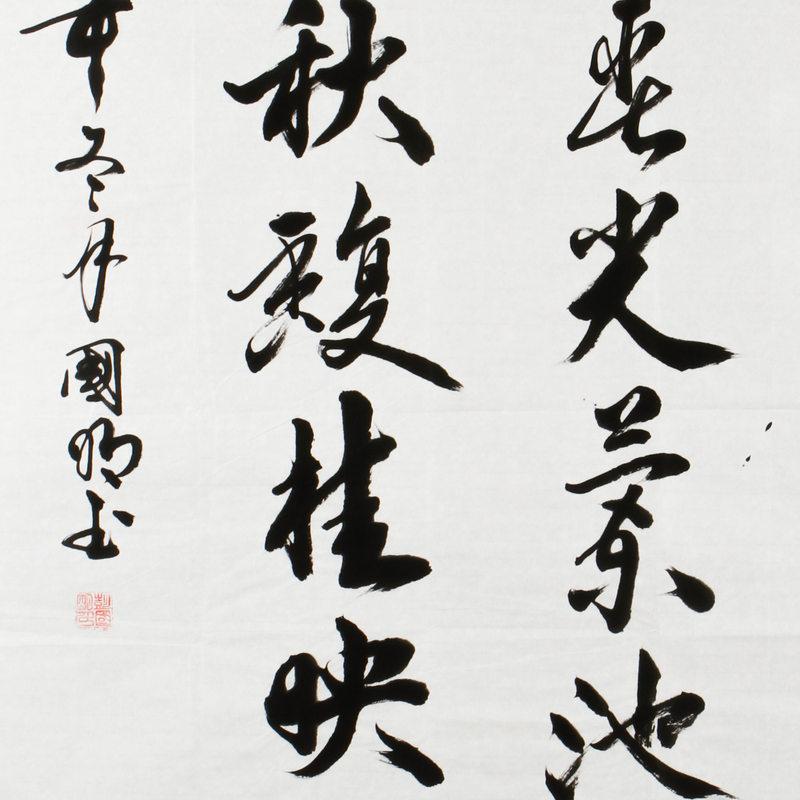 垂光蘭池
秋馥桂映
年冬月國明書